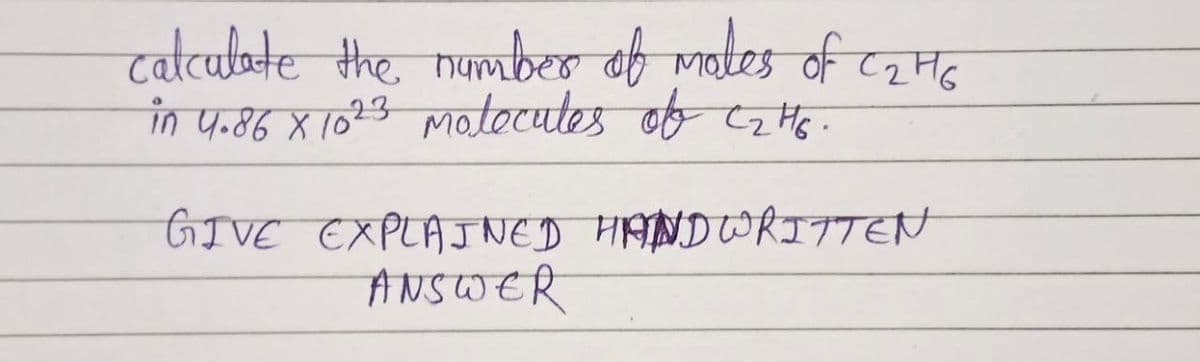 calculate the number of moles of C₂H₆
in 4.86 X 10²³ molecules of C₂H₆.
GIVE EXPLAINED HANDWRITTEN
ANSWER